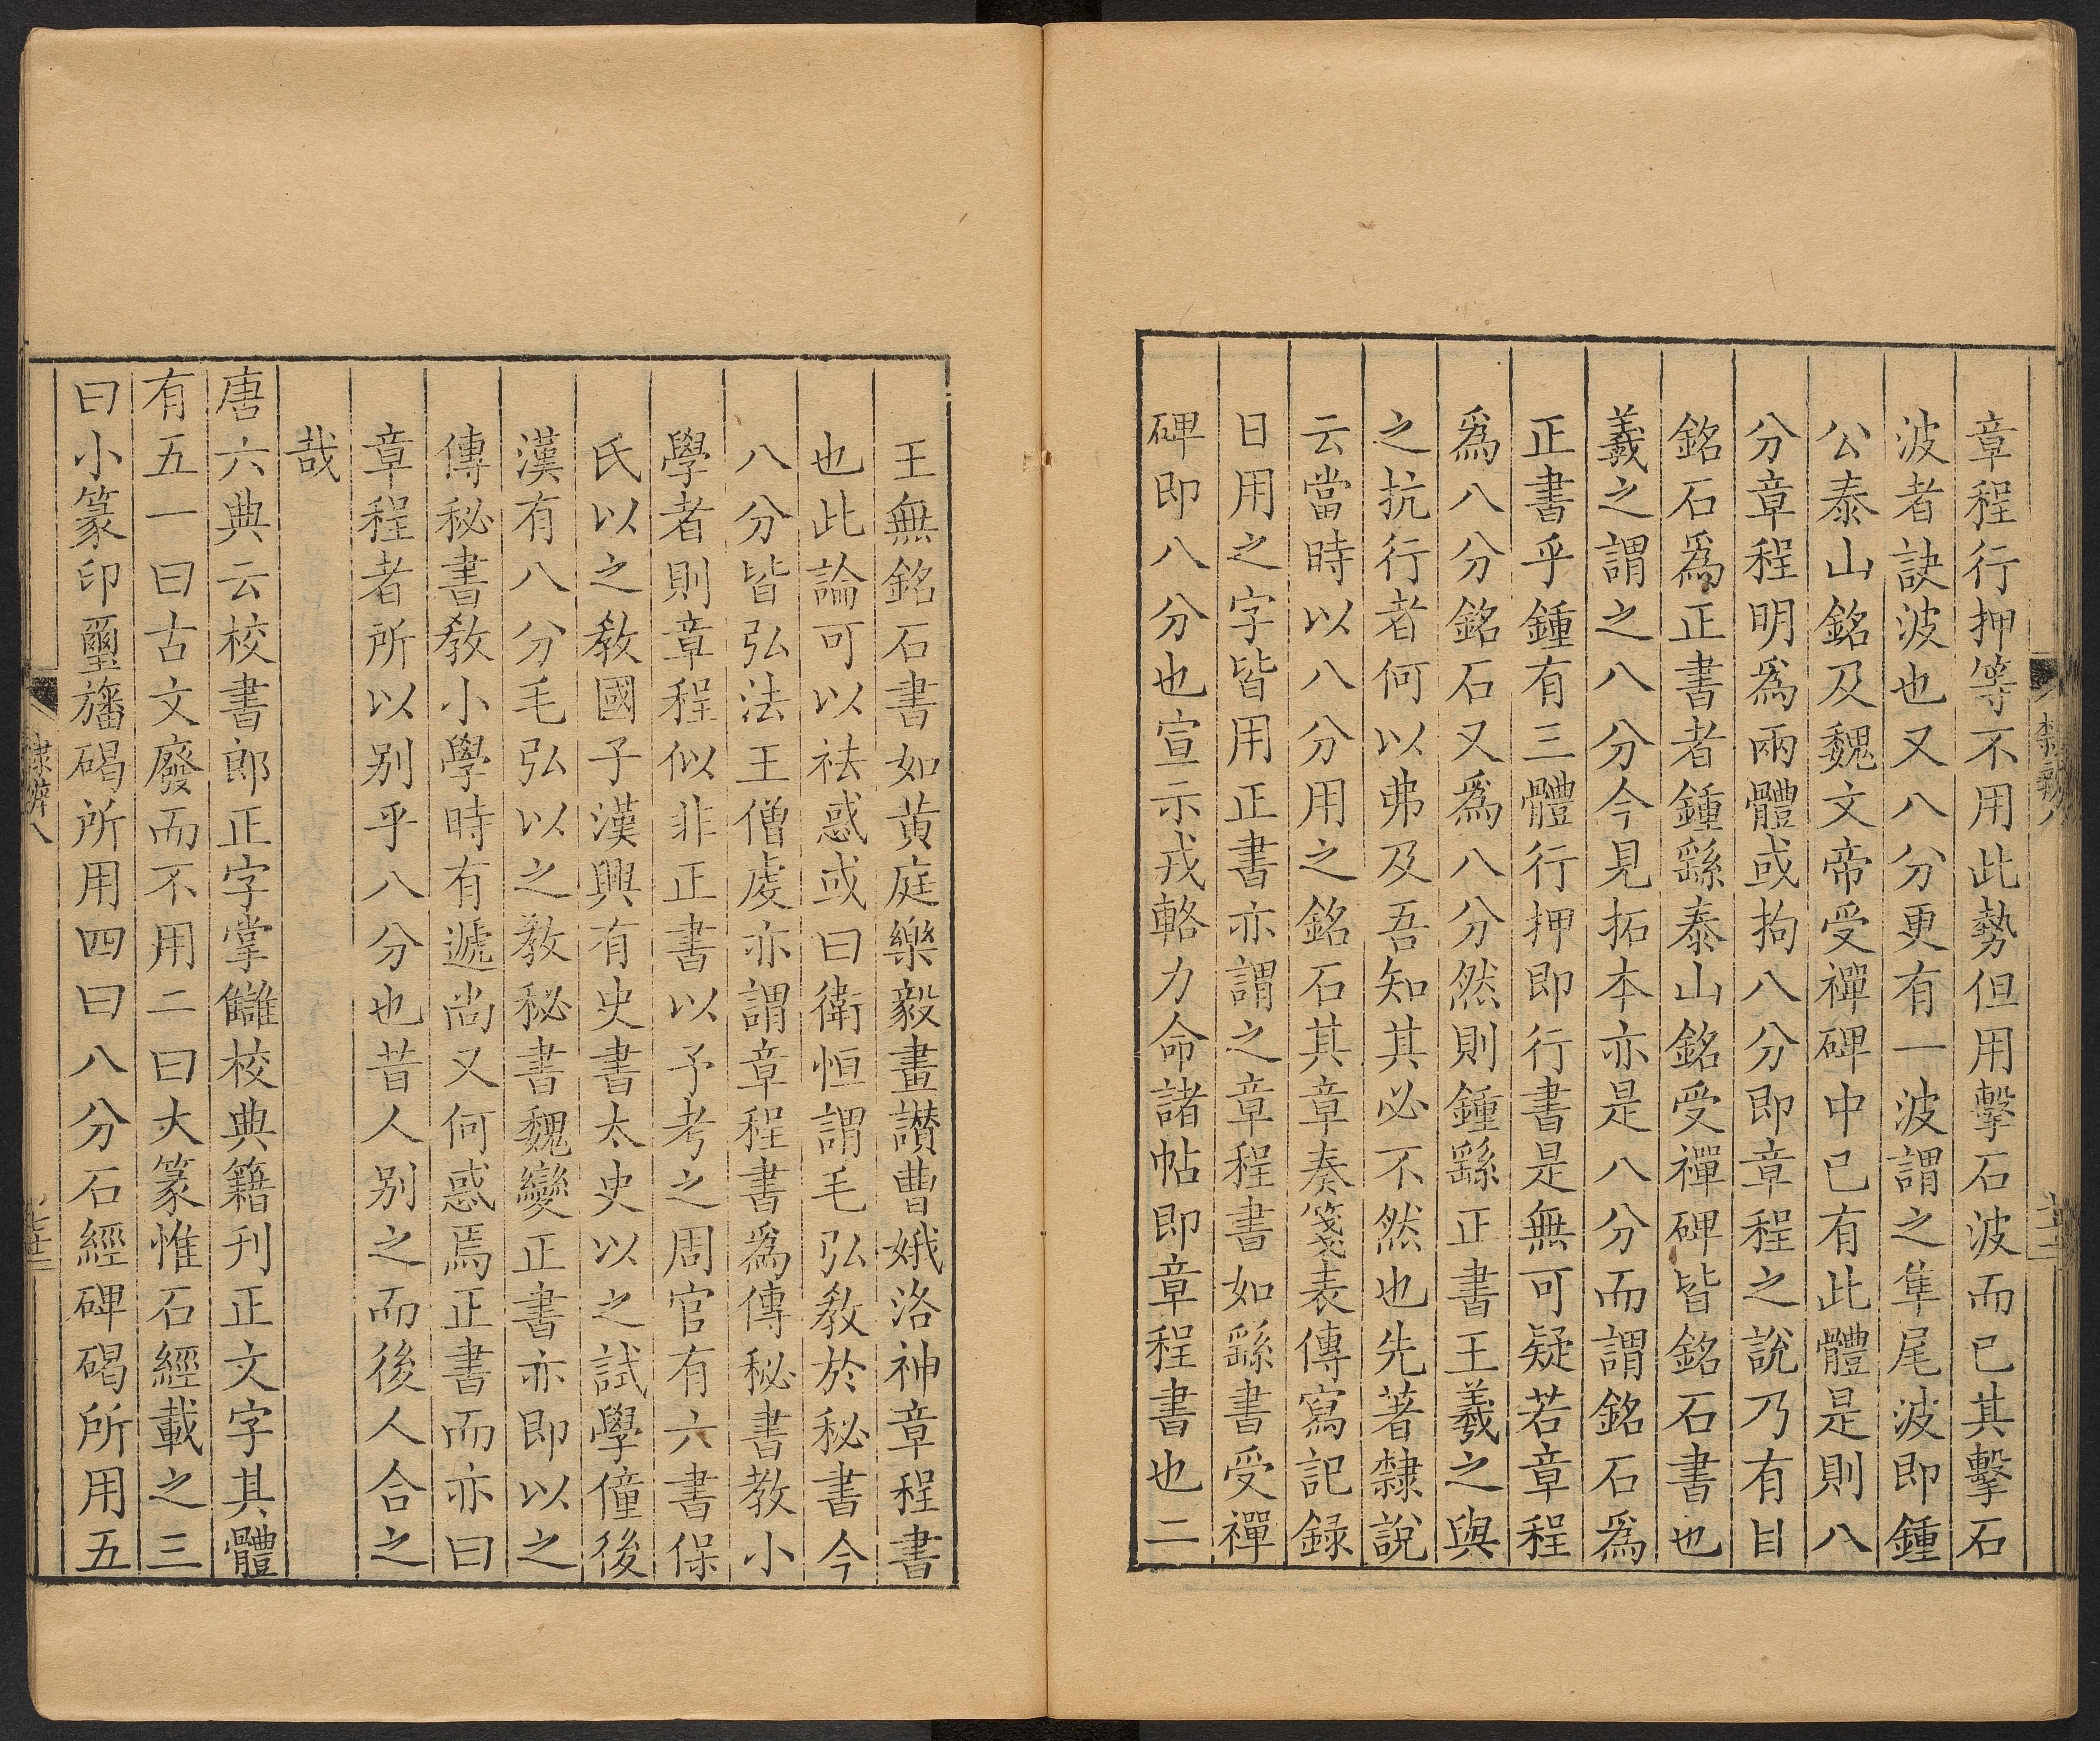 章程行押等不用此勢但用擊石波而已其擊石
波者訣波也又八分更有一波謂之隼尾波即鍾
公泰山銘及魏文帝受禪碑中已有此體是則八
分章程明爲兩體或拘八分即章程之說乃有目
銘石爲正書者鍾繇泰山銘受禪碑皆銘石書也
羲之謂之八分今見拓本亦是八分而謂銘石爲
正書乎鍾有三體行押即行書是無可疑若章程
爲八分銘石又爲八分然則鍾繇正書王羲之與
之抗行者何以弗及吾知其必不然也先著隸說
云當時以八分用之銘石其章奏箋表傳寫記録
日用之字皆用正書亦謂之章程書如繇書受禪
碑即八分也宣示戎輅力命諸帖即章程書也二
王無銘石書如黄庭樂毅畫讃曹娥洛神章程書
也此論可以祛惑或曰衛恒謂毛弘教於秘書今
八分皆弘法王僧虔亦謂章程書爲傳秘書教小
學者則章程似非正書以予考之周官有六書保
氏以之教國子漢興有史書太史以之試學僮後
漢有八分毛弘以之教秘書魏變正書亦即以之
傳秘書教小學時有遞尚又何惑焉正書而亦曰
章程者所以别乎八分也昔人别之而後人合之
哉
唐六典云校書郎正字掌讎校典籍刊正文字其體
有五一曰古文廢而不用二曰大篆惟石經載之三
曰小篆印璽旛碣所用四曰八分石經碑碣所用五